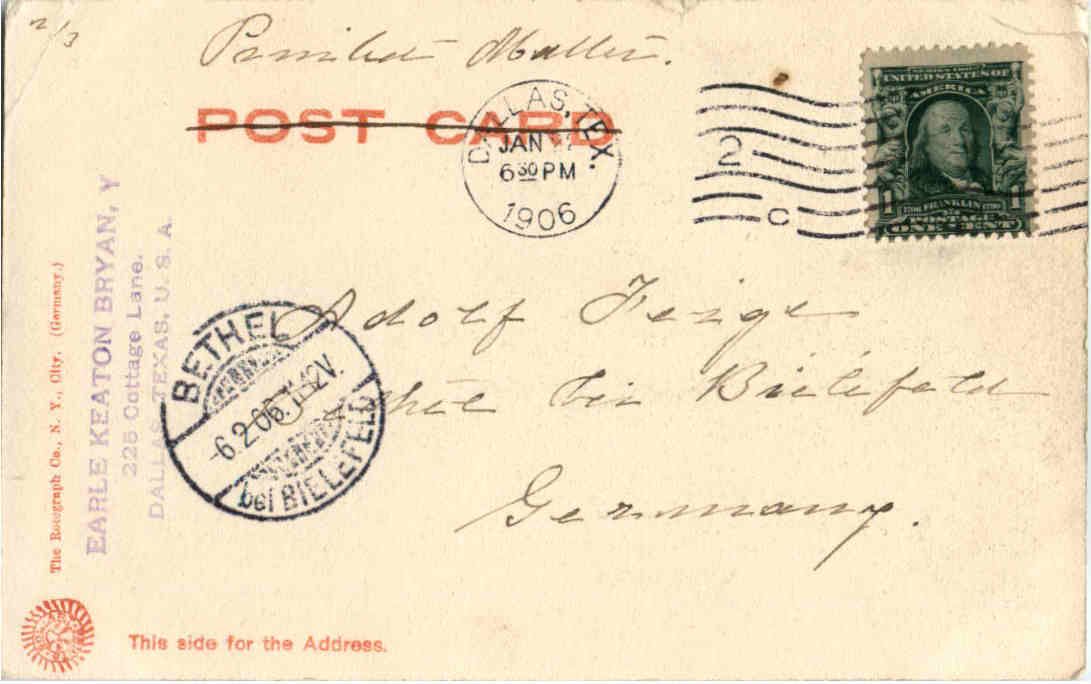 2/3
Printed Matter.
POST CARD
DALLAS, TEX.
JAN
6 30 PM
1906
2
C
SERIES 1902
UNITED STATES OF
AMERICA
1 1
FRANKLIN
POSTAGE
ONE CENT
EARLE KEATON BRYAN, Y
225 Cottage Lane.
DALLAS, TEXAS, U. S. A.
The Rotograph Co., N. Y., City. (Germany.)
Adolf Feige
Bethel bei Bielefeld
Germany.
BETHEL
-6.2.06. 11-12V.
bei BIELEFELD
This side for the Address.